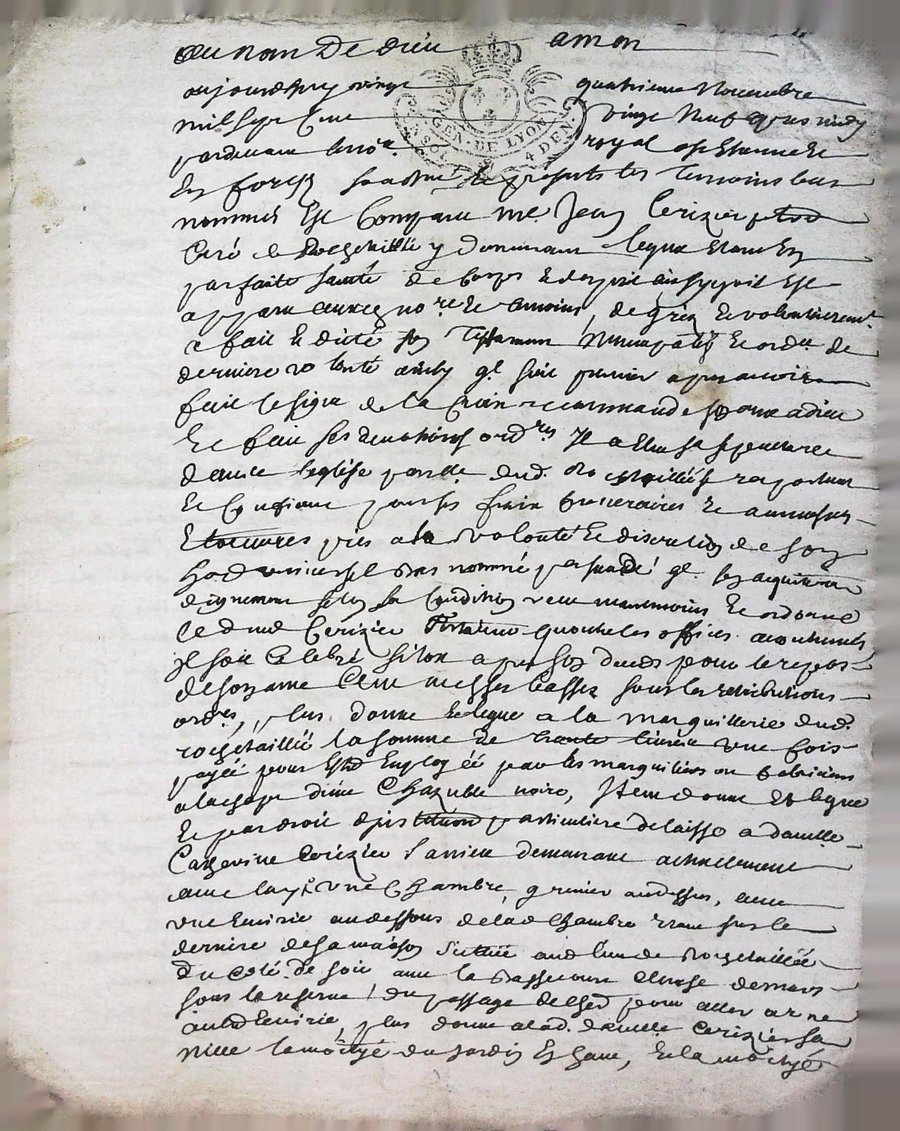 au nom De dieu amen
aujourdhuy vingt quatrieme Novembre
mil sept Cent vingt Neuf apres midy
pardevant le no.re royal a St Etienne
En forez soussigné Et presents les Temoins bas
nommés Est Comparu me Jean Cerizier
Curé de Rochetaillée y demeurant lequel Etant En
parfaite santé de Corps Et desprit
aud no.re Et temoins, de gré Et volontairemt
a fait Et dicté son Testament Nuncupatif Et ordce de
derniere volonté ainsy ql suit premier apres avoir
fait le signe de la Croix recommandé son ame a dieu
Et fait ses devotions ordres Il a Elu sa sepulture
dans l'eglise parlle dud. Rochetaillée raportant
Et Confiant pour ses fraix funeraires Et aumosnes
Et œuvres pies a la volonté Et discretion de son
herr universel bas nommé persuadé ql sen acquittera
dignement selon sa Condition veut neanmoins Et ordonne
led sieur Cerizier quoutre les offices accoutumés
il soit Celebré sitot apres son deces pour le repos
de son ame Cent messes basses sous les retributions
ordres, plus donne Et legue a la marguillerie dud.
rochetaillée la somme de trante livres une fois
payée pour Estre Employée par les marguilliers ou fabriciens
a lachapt d'une Chazuble noire, Item donne Et legue
Et par droit d'institution particuliere delaisse a damlle
Catherine Cerizier sa niece demeurant actuellement
avec luy Une Chambre, grenier audessus, avec
une Ecuirie audessous de lad Chambre Etant sur le
derriere de sa maison Situéé aud lieu de Rochetaillée
Du coté de soir avec la bassecour
sous la reserve du passage de sond herr pour aller
aud Ecuirie, plus donne a lad. damlle Cerizier sa
niece la moityé du jardin Et la moityé